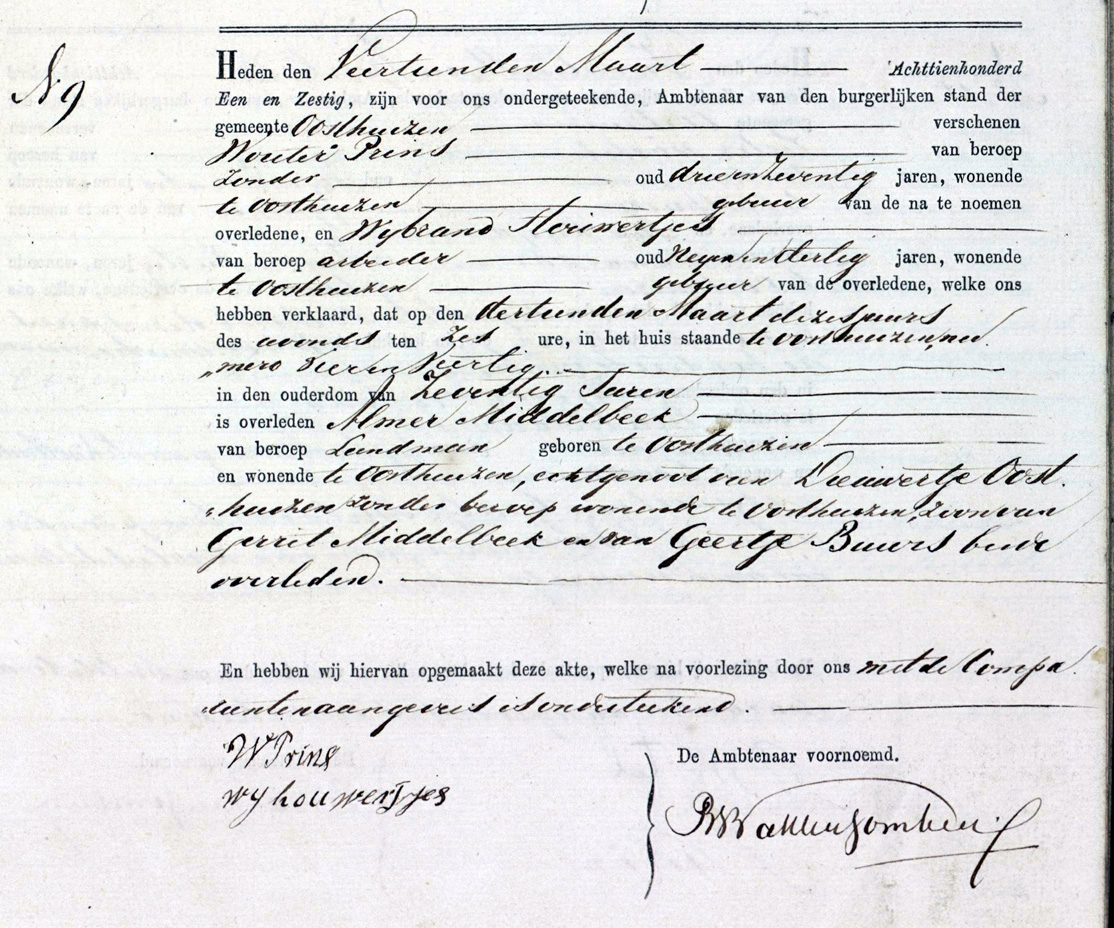 9
Heden den Veertienden Maart Achttienhonderd
Een en Zestig, zijn voor ons ondergeteekende, Ambtenaar van den burgerlijken stand der
gemeente Oosthuizen verschenen
Wouter Prins van beroep
zonder oud drieenzeventig jaren, wonende
te Oosthuizen gebuur van de na te noemen
overledene, en Wybrand Houwertjes
van beroep arbeider oud Negenendertig jaren, wonende
te Oosthuizen gebuur van de overledene, welke ons
hebben verklaard, dat op den dertienden Maart dezes jaars
des avonds ten Zes ure, in het huis staande te Oosthuizen nu
„mero Vier en Veertig
in den ouderdom van Zeventig Jaren
is overleden Almer Middelbeek
van beroep Landman geboren te Oosthuizen
en wonende te Oosthuizen, echtgenoot van Dieuwertje Oost
„huizen zonder beroep wonende te Oosthuizen, Zoon van
Gerrit Middelbeek en van Geertje Buurs beide
overleden.
En hebben wij hiervan opgemaakt deze akte, welke na voorlezing door ons met de Compa
„ranten aangevers is onderteekend
W Prins
wy houwertjes
De Ambtenaar voornoemd.